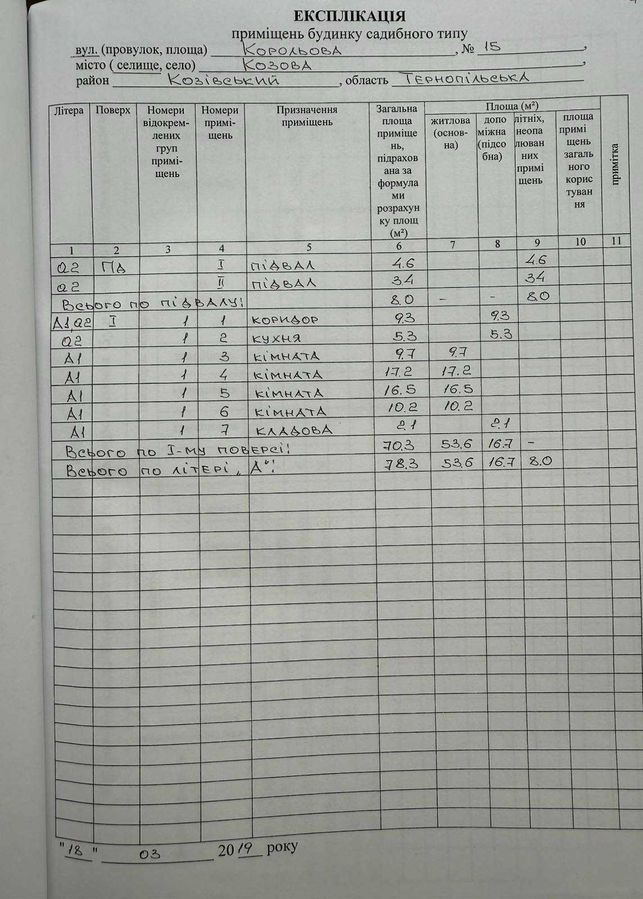 ЕКСПЛІКАЦІЯ
приміщень будинку садибного типу
вул. (провулок, площа) Корольова, № 15,
місто ( селище, село) Козова,
район Козівський, область Тернопільська
Літера Поверх Номери відокрем-лених груп примі-щень Номери примі-щень Призначення приміщень Загальна площа приміще нь, підрахов ана за формула ми розрахун ку площ (м²) Площа (м²) житлова (основ-на) допо міжна (підсо бна) літніх, неопа люван них примі щень площа примі щень загаль ного корис туван ня примітка
1 2 3 4 5 6 7 8 9 10 11
а2 Пд I підвал 4.6 4.6
а2 II підвал 3.4 3.4
Всього по підвалу: 8.0 - - 8.0
А1,а2 I 1 1 коридор 9.3 9.3
а2 1 2 кухня 5.3 5.3
А1 1 3 кімната 9.7 9.7
А1 1 4 кімната 17.2 17.2
А1 1 5 кімната 16.5 16.5
А1 1 6 кімната 10.2 10.2
А1 1 7 кладова 2.1 2.1
Всього по I-му поверсі: 70.3 53.6 16.7 -
Всього по літері „А": 78.3 53.6 16.7 8.0
"18" 03 2019 року